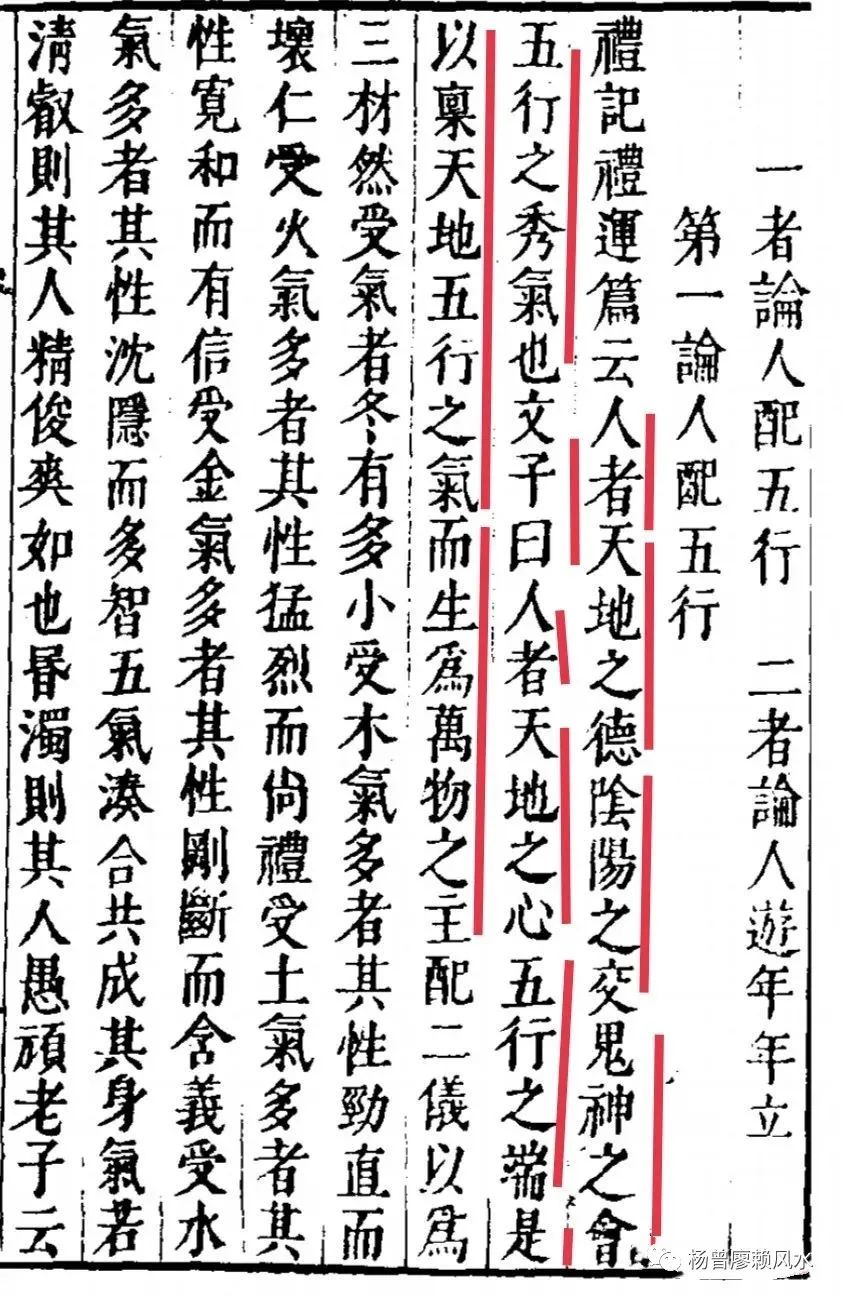 一者論人配五行　二者論人遊年年立
第一論人配五行
禮記禮運篇云人者天地之德陰陽之交鬼神之會
五行之秀氣也文子曰人者天地之心五行之端是
以稟天地五行之氣而生爲萬物之主配二儀以爲
三材然受氣者各有多小受木氣多者其性勁直而
壞仁受火氣多者其性猛烈而尚禮受土氣多者其
性寬和而有信受金氣多者其性剛斷而含義受水
氣多者其性沈隱而多智五氣湊合共成其身氣若
淸叡則其人精俊爽如也昬濁則其人愚頑老子云
杨曾廖赖风水